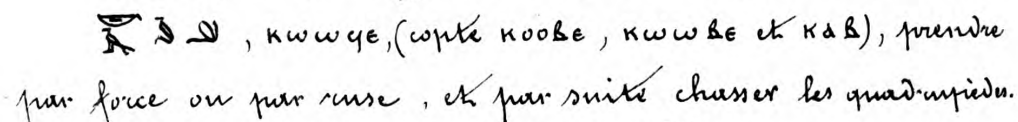 , ⲕⲱⲱϥⲉ, (copte ⲕⲟⲟⲃⲉ, ⲕⲱⲱⲃⲉ et ⲕⲁⲃ), prendre
par force ou par ruse, et par suite chasser les quadrupèdes.